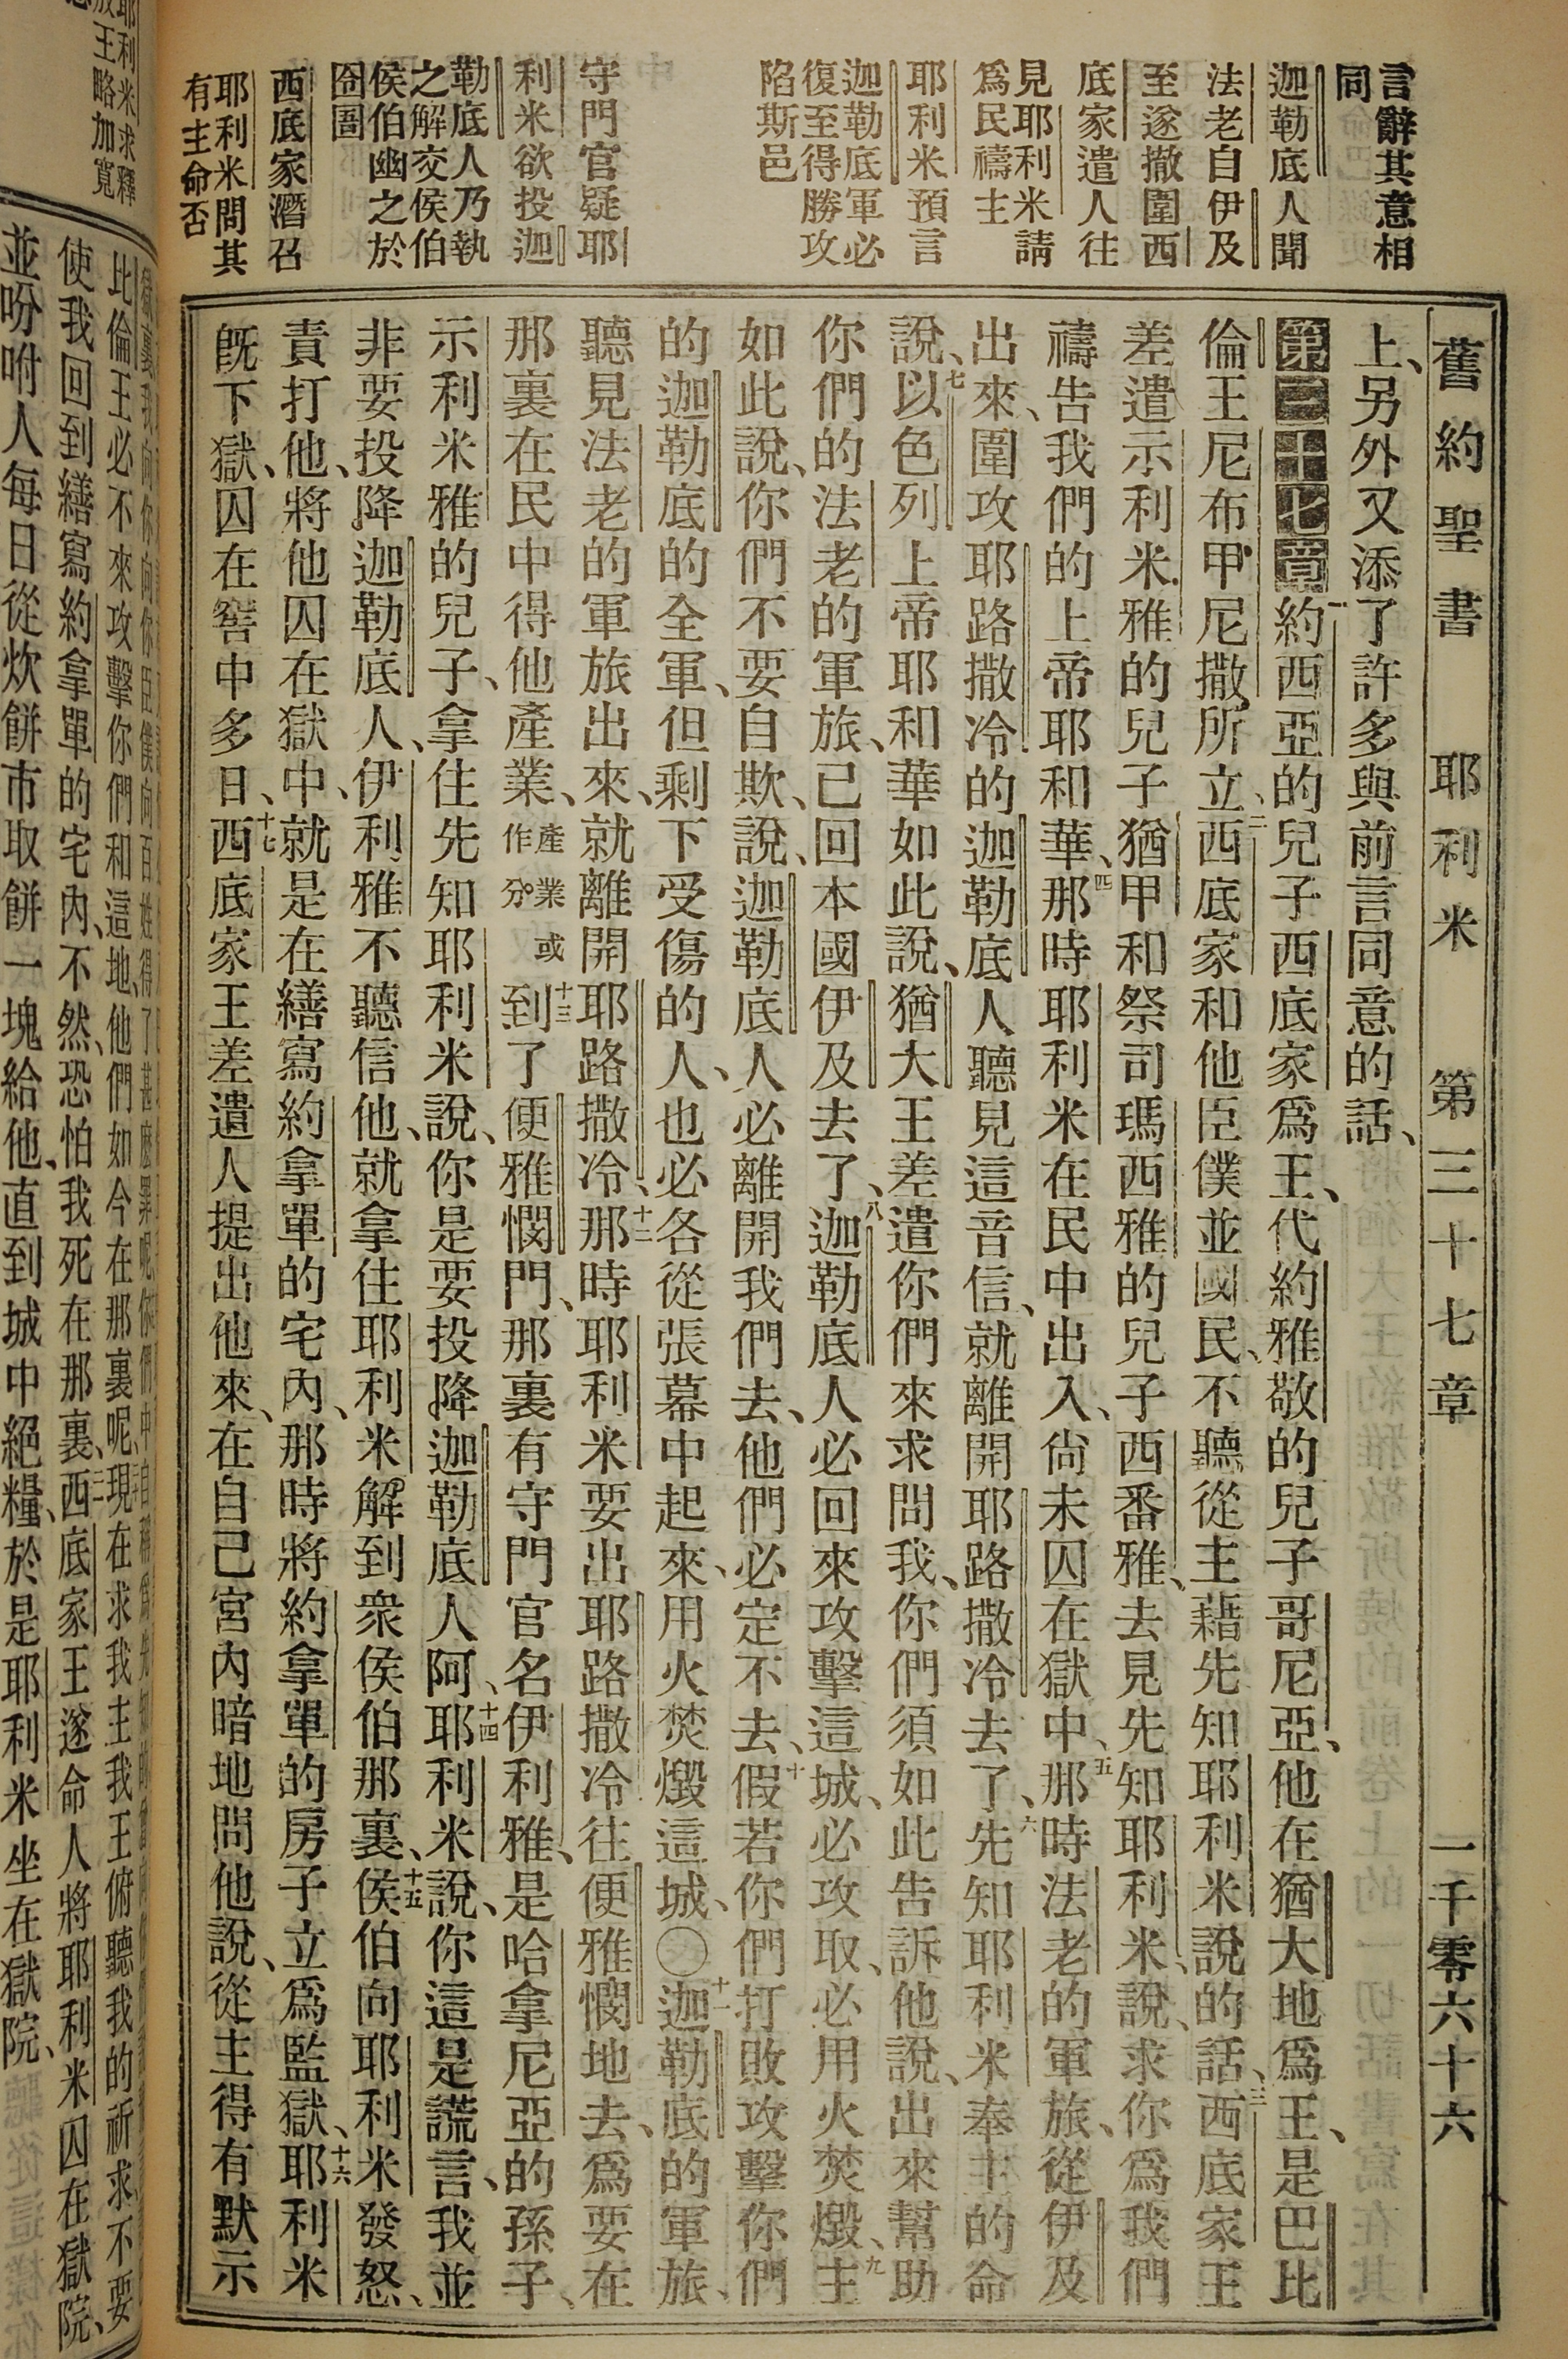 舊約聖書 耶利米 第三十七章 一千零六十六
言辭其意相
同
迦勒底人聞
法老自伊及
至遂撤圍西
底家遣人往
見耶利米請
爲民禱主
耶利米預言
迦勒底軍必
復至得勝攻
陷斯邑
守門官疑耶
利米欲投迦
勒底人乃執
之解交侯伯
侯伯幽之於
囹圄
西底家潛召
耶利米問其
有主命否
上、另外又添了許多與前言同意的話、
第三十七章 一約西亞的兒子西底家爲王、代約雅敬的兒子哥尼亞、他在猶大地爲王、是巴比
倫王尼布甲尼撒所立、二西底家和他臣僕並國民、不聽從主藉先知耶利米說的話、三西底家王
差遣示利米雅的兒子猶甲和祭司瑪西雅的兒子西番雅、去見先知耶利米、說、求你爲我們
禱告我們的上帝耶和華、四那時耶利米在民中出入、尙未囚在獄中、五那時法老的軍旅、從伊及
出來、圍攻耶路撒冷的迦勒底人聽見這音信、就離開耶路撒冷去了、六先知耶利米奉主的命
說、七以色列上帝耶和華如此說、猶大王差遣你們來求問我、你們須如此告訴他說、出來幫助
你們的法老的軍旅、已回本國伊及去了、八迦勒底人必回來攻擊這城、必攻取、必用火焚燬、九主
如此說、你們不要自欺、說、迦勒底人必離開我們去、他們必定不去、十假若你們打敗攻擊你們
的迦勒底的全軍、但剩下受傷的人、也必各從張幕中起來、用火焚燬這城、○十一迦勒底的軍旅、
聽見法老的軍旅出來、就離開耶路撒冷、十二那時耶利米要出耶路撒冷往便雅憫地去、爲要在
那裏在民中得他產業、產業或作分 十三到了便雅憫門、那裏有守門官名伊利雅、是哈拿尼亞的孫子、
示利米雅的兒子、拿住先知耶利米說、你是要投降迦勒底人阿、十四耶利米說、你這是謊言、我並
非要投降迦勒底人、伊利雅不聽信他、就拿住耶利米解到衆侯伯那裏、十五侯伯向耶利米發怒、
責打他、將他囚在獄中、就是在繕寫約拿單的宅內、那時將約拿單的房子立爲監獄、十六耶利米
旣下獄、囚在窖中多日、十七西底家王差遣人提出他來、在自己宮內暗地問他說、從主得有默示
耶利米求釋
王略加寬
比倫王必不來攻擊你們和這地、他們如今在那裏呢、現在求我主我王俯聽我的祈求、不要
使我回到繕寫約拿單的宅內、不然、恐怕我死在那裏、西底家王遂命人將耶利米囚在獄院、
並吩咐人每日從炊餅市取餅一塊給他、直到城中絕糧、於是耶利米坐在獄院、